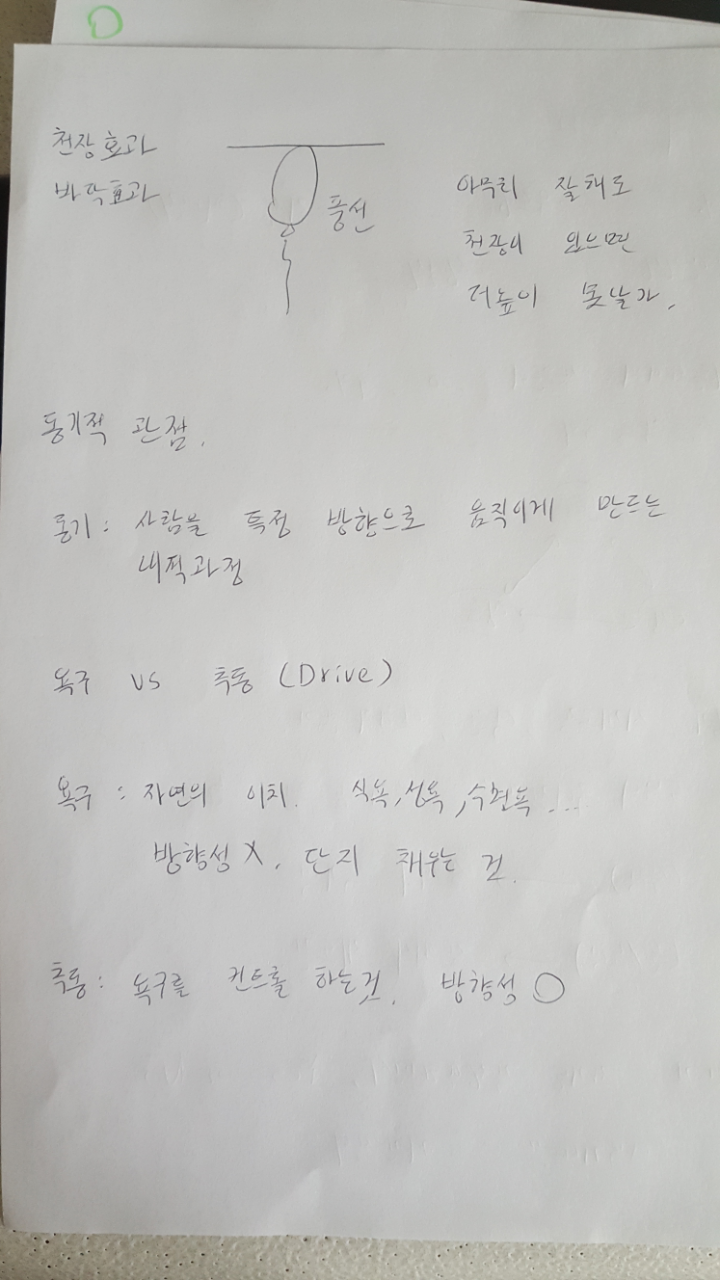 천장효과
바닥효과
풍선
아무리 잘해도
천장이 있으면
더높이 못날가.
동기적 관점.
동기: 사람을 특정 방향으로 움직이게 만드는
내적과정
욕구 vs 추동 (Drive)
욕구 : 자연의 이치. 식욕, 성욕, 수면욕...
방향성 X. 단지 채우는 것.
추동: 욕구를 컨트롤 하는것. 방향성 O